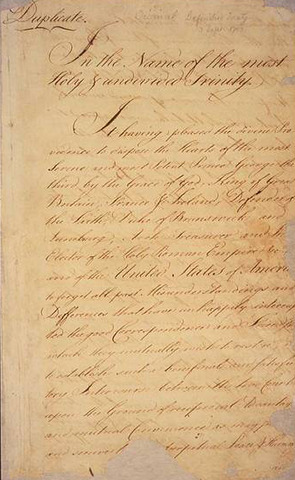 Duplicate.
Original Definitive Treaty
3 Sept. 1783
In the Name of the most
Holy & undivided Trinity.
It having pleased the divine Pro
vidence to dispose the Hearts of the most
Serene and most Potent Prince George the
third, by the Grace of God, King of Great
Britain, France & Ireland, Defender of
the Faith, Duke of Brunswick and
Lunebourg, Arch Treasurer and
Elector of the Holy Roman Empire
and of the United States of America
to forget all past Misunderstandings and
Differences that have unhappily interrup
ted the good Correspondence and Friendship
which they mutually wish to
to establish such a beneficial and satisfac
tory Intercourse between the two
upon the Ground of reciprocal
and mutual Convenience as may
and secure perpetual Peace &